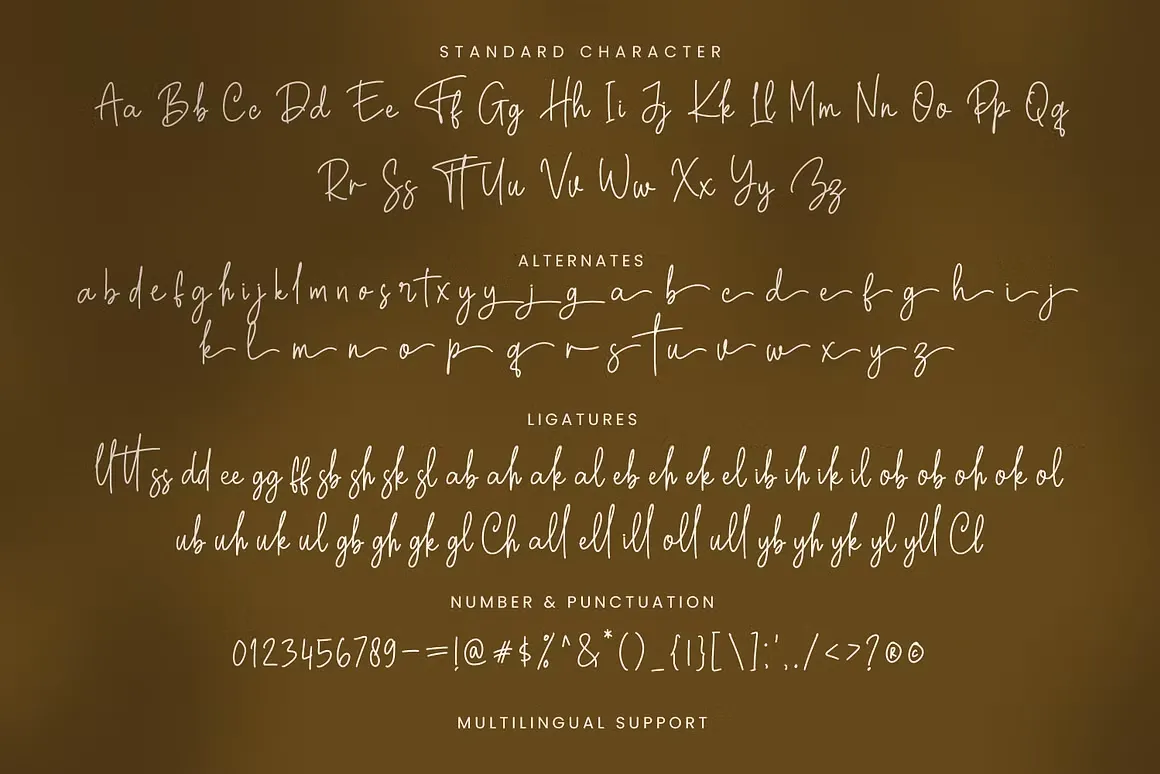 STANDARD CHARACTER
Aa Bb Cc Dd Ee Ff Gg Hh Ii Jj Kk Ll Mm Nn Oo Pp Qq
Rr Ss Tt Uu Vv Ww Xx Yy Zz
ALTERNATES
a b d e f g h i j k l m n o s r t x y y j g a b c d e f g h i j
k l m n o p q r s t u v w x y z
LIGATURES
ll tt ss dd ee gg ff sb sh sk sl ab ah ak al eb eh ek el ib ih ik il ob ob oh ok ol
ub uh uk ul gb gh gk gl Ch all ell ill oll ull yb yh yk yl yll Cl
NUMBER & PUNCTUATION
0123456789-=!@#$%^&*()_{|}[\];',./<>?®©
MULTILINGUAL SUPPORT